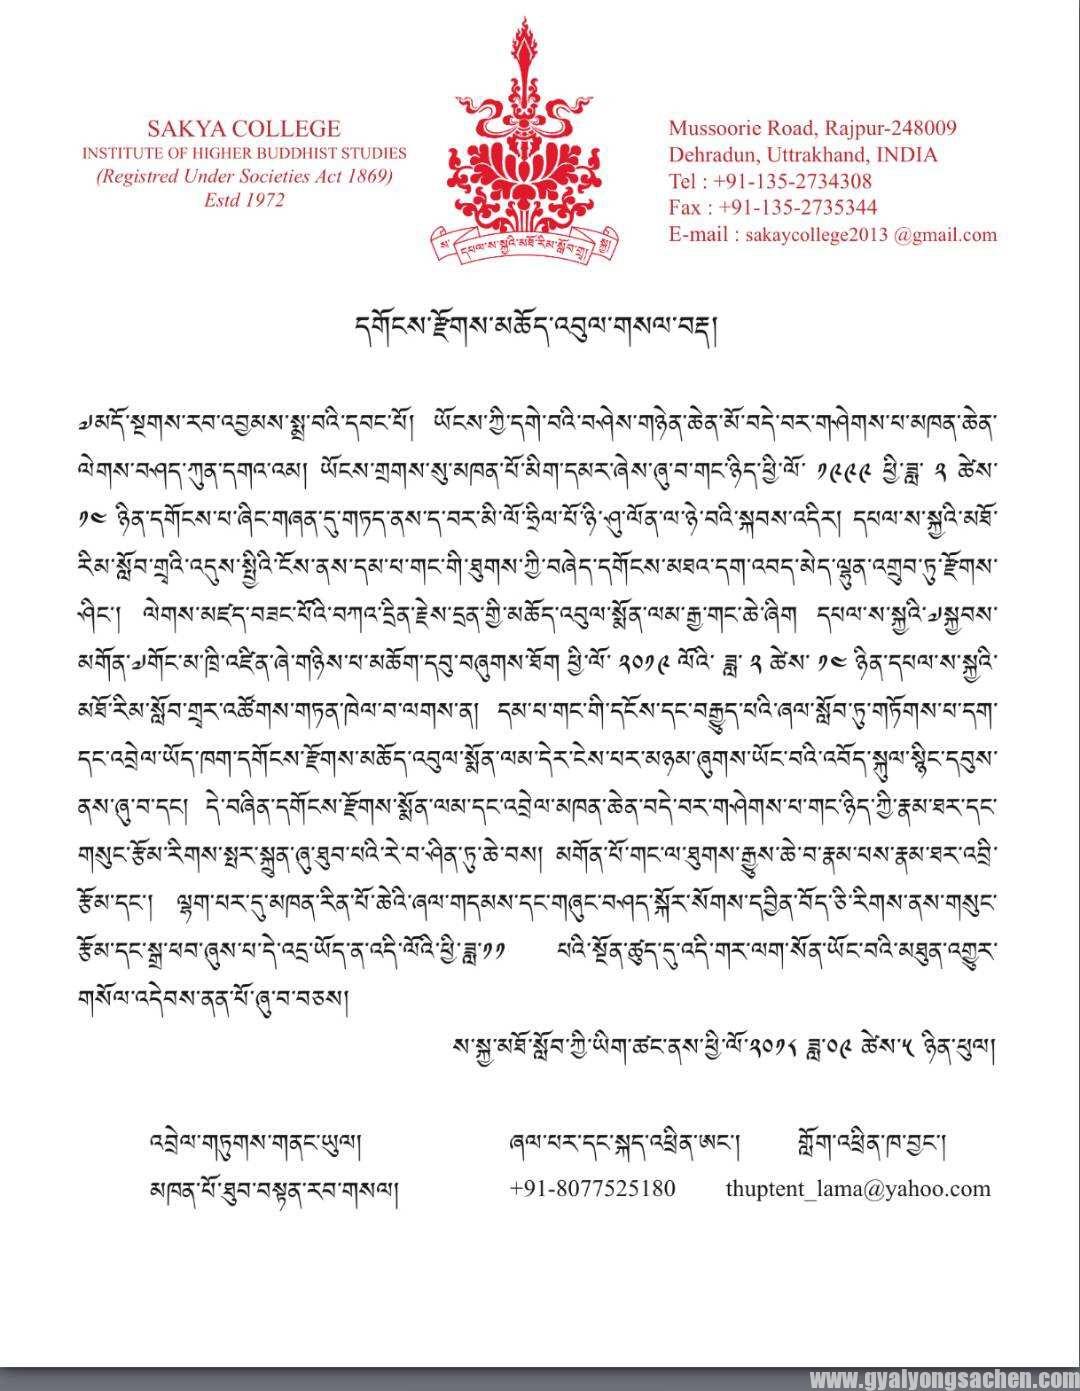 SAKYA COLLEGE
INSTITUTE OF HIGHER BUDDHIST STUDIES
(Registred Under Societies Act 1869)
Estd 1972
ས་ དཔལ་ས་སྐྱའི་མཐོ་རིམ་སློབ་གྲྭ། སྐྱ།
Mussoorie Road, Rajpur-248009
Dehradun, Uttrakhand, INDIA
Tel : +91-135-2734308
Fax : +91-135-2735344
E-mail : sakaycollege2013 @gmail.com
དགོངས་རྫོགས་མཆོད་འབུལ་གསལ་བརྡ།
༧མདོ་སྔགས་རབ་འབྱམས་སྨྲ་བའི་དབང་པོ། ཡོངས་ཀྱི་དགེ་བའི་བཤེས་གཉེན་ཆེན་མོ་བདེ་བར་གཤེགས་པ་མཁན་ཆེན་
ལེགས་བཤད་ཀུན་དགའ་འམ། ཡོངས་གྲགས་སུ་མཁན་པོ་མིག་དམར་ཞེས་ཞུ་བ་གང་ཉིད་ཕྱི་ལོ་ ༡༩༩༩ ཕྱི་ཟླ་ ༢ ཚེས་
༡༤ ཉིན་དགོངས་པ་ཞིང་གཞན་དུ་གཏད་ནས་ད་བར་མི་ལོ་ཧྲིལ་པོ་ཉི་ཤུ་ལོན་ལ་ཉེ་བའི་སྐབས་འདིར། དཔལ་ས་སྐྱའི་མཐོ་
རིམ་སློབ་གྲྭའི་འདུས་སྤྱིའི་ངོས་ནས་དམ་པ་གང་གི་ཐུགས་ཀྱི་བཞེད་དགོངས་མཐའ་དག་འབད་མེད་ལྷུན་འགྲུབ་ཏུ་རྫོགས་
ཤིང་། ལེགས་མཛད་བཟང་པོའི་བཀའ་དྲིན་རྗེས་དྲན་གྱི་མཆོད་འབུལ་སྨོན་ལམ་རྒྱ་གང་ཆེ་ཞིག དཔལ་ས་སྐྱའི་༧སྐྱབས་
མགོན་༧གོང་མ་ཁྲི་འཛིན་ཞེ་གཉིས་པ་མཆོག་དབུ་བཞུགས་ཐོག ཕྱི་ལོ་ ༢༠༡༩ ལོའི་ ཟླ་ ༢ ཚེས་ ༡༤ ཉིན་དཔལ་ས་སྐྱའི་
མཐོ་རིམ་སློབ་གྲྭར་འཚོགས་གཏན་ཁེལ་བ་ལགས་ན། དམ་པ་གང་གི་དངོས་དང་བརྒྱུད་པའི་ཞལ་སློབ་ཏུ་གཏོགས་པ་དག་
དང་འབྲེལ་ཡོད་ཁག་དགོངས་རྫོགས་མཆོད་འབུལ་སྨོན་ལམ་དེར་ངེས་པར་མཉམ་ཞུགས་ཡོང་བའི་འབོད་སྐུལ་སྙིང་དབུས་
ནས་ཞུ་བ་དང། དེ་བཞིན་དགོངས་རྫོགས་སྨོན་ལམ་དང་འབྲེལ་མཁན་ཆེན་བདེ་བར་གཤེགས་པ་གང་ཉིད་ཀྱི་རྣམ་ཐར་དང་
གསུང་རྩོམ་རིགས་སྤར་སྐྲུན་ཞུ་ཐུབ་པའི་རེ་བ་ཤིན་ཏུ་ཆེ་བས། མགོན་པོ་གང་ལ་ཐུགས་རྒྱུས་ཆེ་བ་རྣམ་པས་རྣམ་ཐར་འབྲི་
རྩོམ་དང་། ལྷག་པར་དུ་མཁན་རིན་པོ་ཆེའི་ཞལ་གདམས་དང་གཞུང་བཤད་སྐོར་སོགས་དབྱིན་བོད་ཅི་རིགས་ནས་གསུང་
རྩོམ་དང་སྒྲ་ཕབ་ཞུས་པ་དེ་འདྲ་ཡོད་ན་འདི་ལོའི་ཕྱི་ཟླ་༡༡ པའི་སྔོན་ཚུད་དུ་འདི་གར་ལག་སོན་ཡོང་བའི་མཐུན་འགྱུར་
གསོལ་འདེབས་ནན་པོ་ཞུ་བ་བཅས།
ས་སྐྱ་མཐོ་སློབ་ཀྱི་ཡིག་ཚང་ནས་ཕྱི་ལོ་༢༠༡༨ ཟླ་༠༩ ཚེས་༥ ཉིན་ཕུལ།
འབྲེལ་གཏུགས་གནང་ཡུལ། ཞལ་པར་དང་སྐད་འཕྲིན་ཨང་། གློག་འཕྲིན་ཁ་བྱང་།
མཁན་པོ་ཐུབ་བསྟན་རབ་གསལ། +91-8077525180 thuptent_lama@yahoo.com
www.gyalyongsachen.com